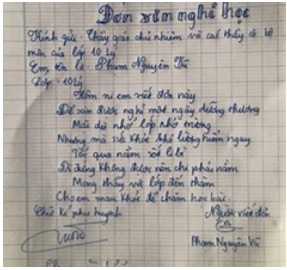 Đơn xin nghỉ học
Kính gửi: Thầy giáo chủ nhiệm và các thầy cô bộ
môn của lớp 10 Lý
Em tên là: Phạm Nguyên Vũ
Lớp: 10Lý
Hôm ni em viết đơn này
Để xin được nghỉ một ngày dưỡng thương
Mấu dù nhớ lớp nhớ trường
Nhưng mà sức khỏe khó lường hiểm nguy
Tối qua nằm sốt li bì
Đi đứng không được nên chi phải nằm
Mong thầy và lớp đến thăm
Cho em mau khỏe để chăm học bài.
Chữ kí phụ huynh
Người viết đơn
Phạm Nguyên Vũ